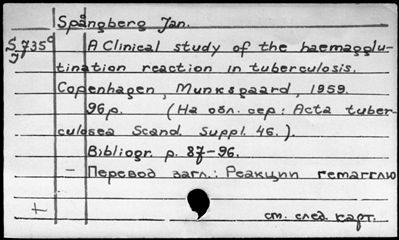 Spångberg Jan.
S735° A Clinical study of the haemagglu-
J tination reaction in tuberculosis.
Copenhagen, Munksgaard, 1959.
96p. (На обл. сер: Acta tuber-
culosea Scand. Suppl. 46.).
Bibliogr. p. 87-96.
- Перевод загл.: Реакции гемагглю
+ см. след. карт.